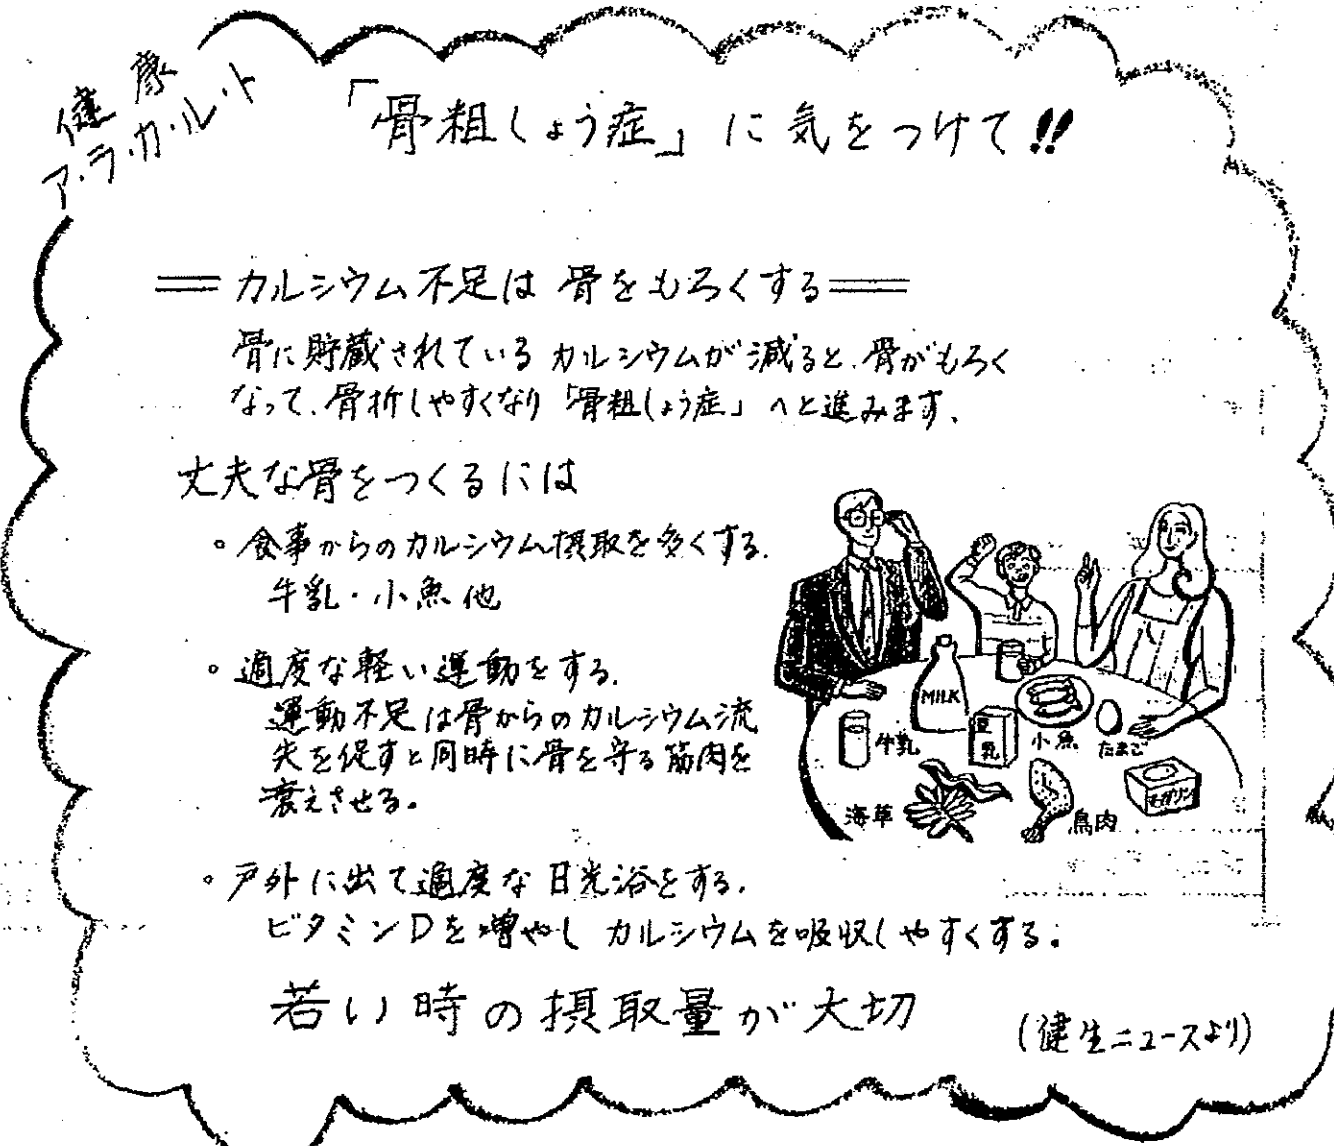 健康
ア・ラ・カ・ル・ト
「骨粗しょう症」に気をつけて!!
カルシウム不足は骨をもろくする
骨に貯蔵されているカルシウムが減ると、骨がもろく
なって、骨折しやすくなり「骨粗しょう症」へと進みます、
丈夫な骨をつくるには
・食事からのカルシウム摂取を多くする、
牛乳・小魚他
・適度な軽い運動をする、
運動不足は骨からのカルシウム流
失を促すと同時に骨を守る筋肉を
衰えさせる。
MILK
牛乳
豆乳
小魚
たまご
海草
鳥肉
マーガリン
・戸外に出て適度な日光浴をする、
ビタミンDを増やしカルシウムを吸収しやすくする。
若い時の摂取量が大切
(健生ニュースより)